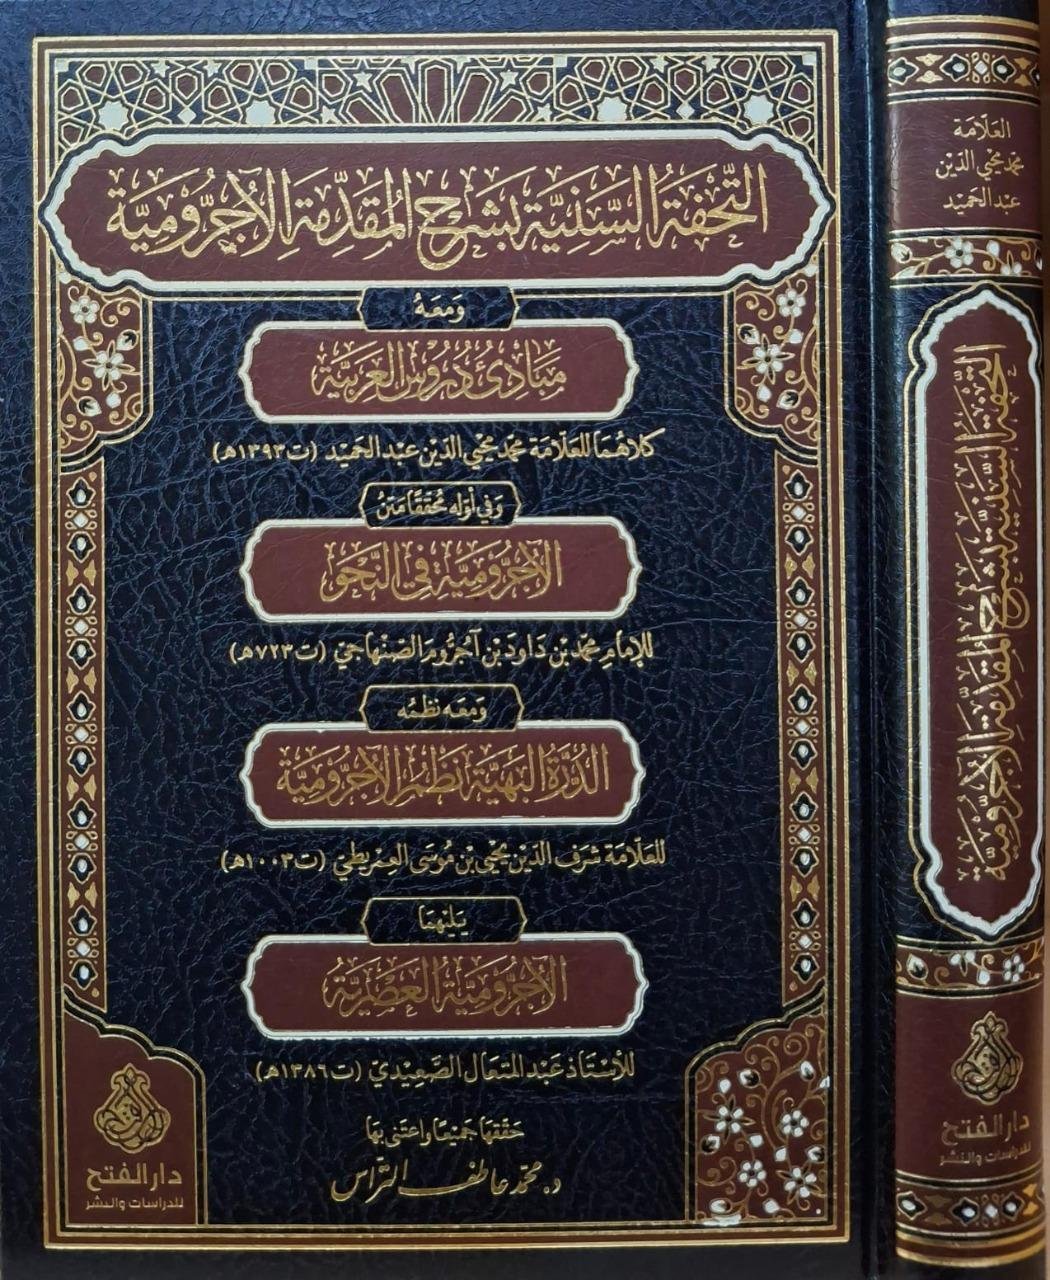 التُّحْفَةُ السَّنِيَّة بشَرْحِ المُقَدِّمَةِ الآجُرُّومِيَّة
وَمَعَهُ
مَبَادِئُ دُرُوسِ العَرَبِيَّة
كلاهُمَا للعَلّامَة محمّد محيي الدّين عبد الحَميد (ت١٣٩٣هـ)
وَفي أوّله مُحَقَّقًا مَتنُ
الآجُرُّومِيَّة فِي النَّحْوِ
للإمام محمّد بن دَاودَ بن آجُرُّومَ الصّنهَاجيّ (ت٧٢٣هـ)
وَمعَه نظمُه
الدُّرَّةُ البَهِيَّة نَظْمُ الآجُرُّومِيَّة
للعَلّامَة شرَف الدّين يَحيَى بن مُوسَى العِمْريطيّ (ت١٠٠٣هـ)
يَليْهمَا
الآجُرُّوميَّةُ العَصْرِيَّةُ
للأستَاذ عَبد المتعَال الصَّعِيديّ (ت١٣٨٦هـ)
حَقّقهَا جَميعًا وَاعتَنى بهَا
د. محمّد عَاطف التراس
دار الفتح
للدراسات والنشر
العَلّامَة
محمّد محيي الدّين
عبد الحَميد
التُّحْفَةُ السَّنِيَّة بشَرْحِ المُقَدِّمَةِ الآجُرُّومِيَّة
دار الفتح
للدراسات والنشر